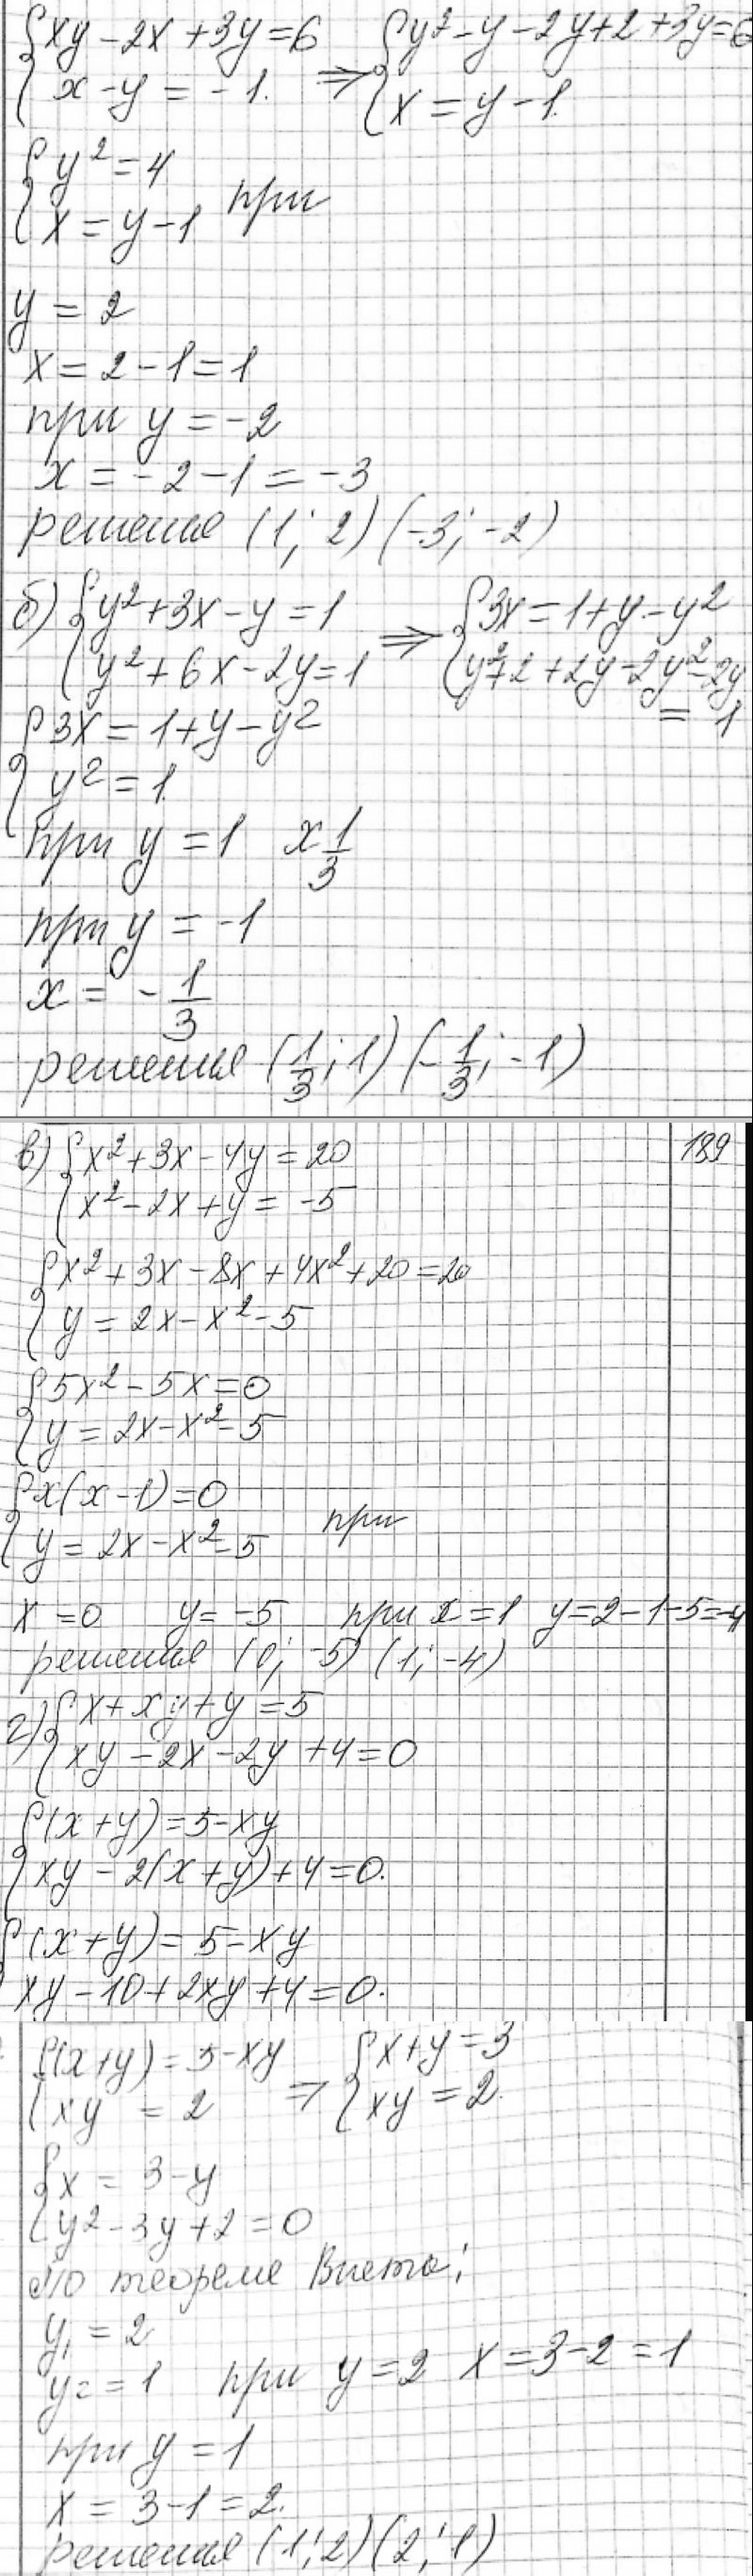 {xy - 2x + 3y = 6 ⇒ {y² - y - 2y + 2 + 3y = 6
{x - y = -1. {x = y - 1.
{y² = 4
{x = y - 1 при
y = 2
x = 2 - 1 = 1
при y = -2
x = -2 - 1 = -3
решения (1; 2) (-3; -2)
б) {y² + 3x - y = 1 ⇒ {3x = 1 + y - y²
{y² + 6x - 2y = 1 {y² + 2 + 2y - 2y² - 2y
= 1
{3x = 1 + y - y²
{y² = 1.
при y = 1 x 1/3
при y = -1
x = - 1/3
решения (1/3; 1) (-1/3; -1)
в) {x² + 3x - 4y = 20 189
{x² - 2x + y = -5
{x² + 3x - 8x + 4x² + 20 = 20
{y = 2x - x² - 5
{5x² - 5x = 0
{y = 2x - x² - 5
{x(x - 1) = 0
{y = 2x - x² - 5 при
x = 0 y = -5 при x = 1 y = 2 - 1 - 5 = -4
решения (0; -5) (1; -4)
г) {x + xy + y = 5
{xy - 2x - 2y + 4 = 0
{(x + y) = 5 - xy
{xy - 2(x + y) + 4 = 0.
{(x + y) = 5 - xy
xy - 10 + 2xy + 4 = 0.
{(x + y) = 5 - xy ⇒ {x + y = 3
{xy = 2 {xy = 2.
{x = 3 - y
{y² - 3y + 2 = 0
По теореме Виета:
y₁ = 2
y₂ = 1 при y = 2 x = 3 - 2 = 1
при y = 1
x = 3 - 1 = 2.
решения (1; 2) (2; 1)